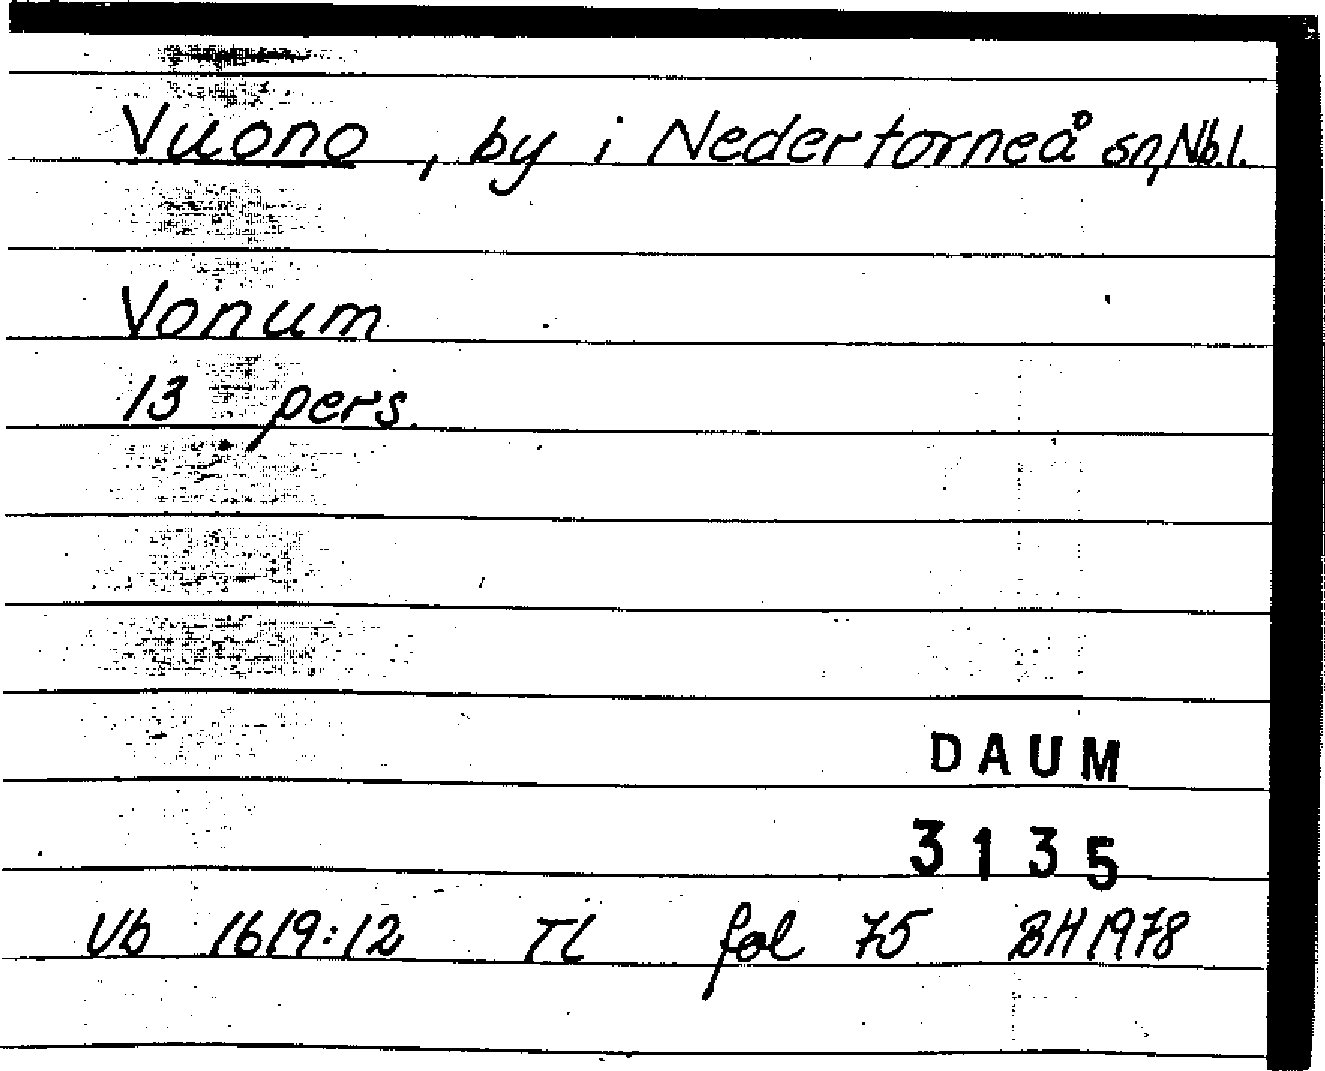 Vuono, by i Nedertorneå sn, Nb.l.
Vonum
13 pers.
DAUM
3135
Vb 1619:12 TL fol 75 BH 1978